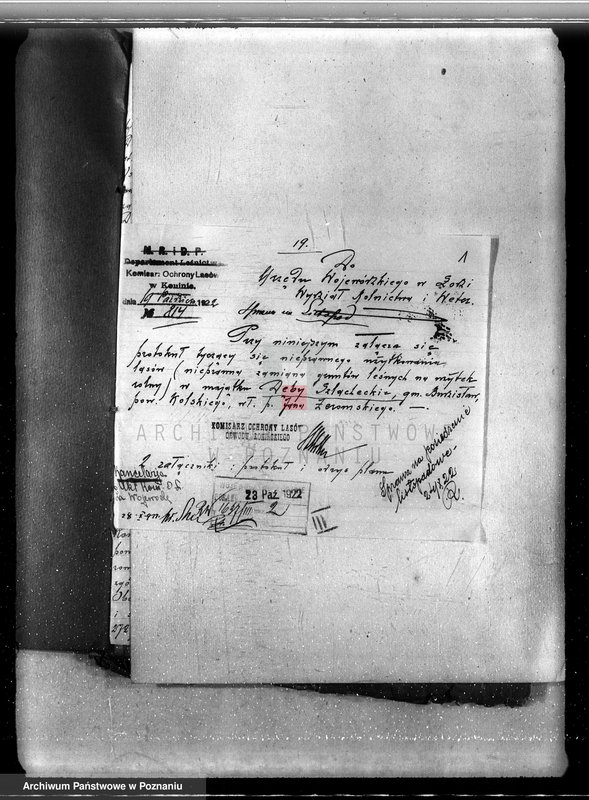 19.
1
M. R. i D. P.
Departament Leśnictwa
Komisarz Ochrony Lasów
w Koninie.
dnia 19 Październ. 1922
№ 814
Do
Urzędu Wojewódzkiego w Łodzi
Wydział Rolnictwa i Weter.
Sprawa na
Przy niniejszym załącza się
protokuł tyczący się nieprawnego użytkowania
lasów (nieprawna zamiana gruntów leśnych na użytek
rolny) w majątku Dęby Szlacheckie, gm. Budzisław,
pow. Kolskiego, wł. p. Jana Żeromskiego. —
KOMISARZ OCHRONY LASÓW
OBWODU KONIŃSKIEGO
ARCHIWUM PAŃSTWOWE
W POZNANIU
2 załączniki: protokuł i odrys planu
Sprawa na posiedzenie
listopadowe
Kancelarja
23 Paź 1922
2
III
272
Archiwum Państwowe w Poznaniu